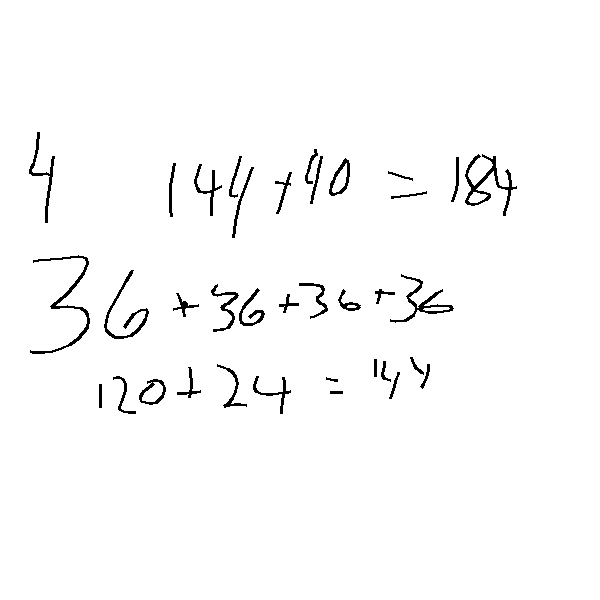 4 144+40 = 184
36+36+36+36
120+24 = 144